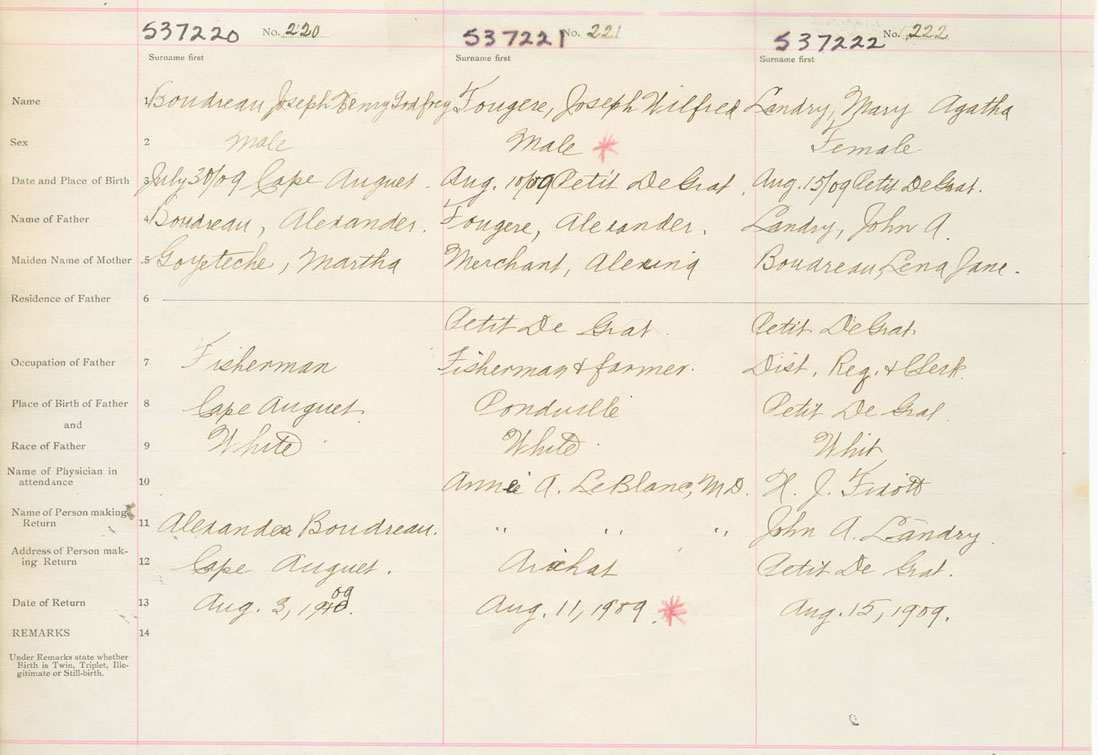 537220 No. 220 537221 No. 221 537222 No. 222
Surname first Surname first Surname first
Name 1 Boudreau, Joseph Henry Godfrey Fougere, Joseph Wilfred Landry, Mary Agatha
Sex 2 Male Male Female
Date and Place of Birth 3 July 30/09 Cape Auguet. Aug. 10/09 Petit De Grat. Aug. 15/09 Petit De Grat.
Name of Father 4 Boudreau, Alexander. Fougere, Alexander. Landry, John A.
Maiden Name of Mother 5 Goyeteche, Martha Merchant, Alexina Boudreau, Lena Jane.
Residence of Father 6
Petit De Grat Petit De Grat
Occupation of Father 7 Fisherman Fisherman & farmer. Dist. Reg. & Clerk
Place of Birth of Father 8 Cape Auguet. Pondville Petit De Grat
and
Race of Father 9 White White Whit
Name of Physician in
attendance 10 Annie A. LeBlanc, M.D. H. J.
Name of Person making
Return 11 Alexander Boudreau. " " " John A. Landry.
Address of Person mak-
ing Return 12 Cape Auguet. Arichat Petit De Grat.
Date of Return 13 Aug. 3, 1909. Aug. 11, 1909. Aug. 15, 1909.
REMARKS 14
Under Remarks state whether
Birth is Twin, Triplet, Ille-
gitimate or Still-birth.